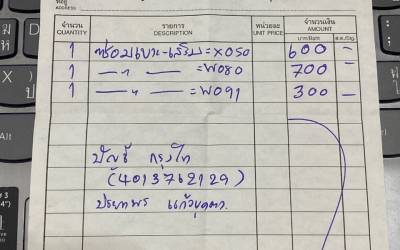 ที่อยู่
ADDRESS
จำนวน
QUANTITY
รายการ
DESCRIPTION
หน่วยละ
UNIT PRICE
จำนวนเงิน
AMOUNT
บาท/Baht ส.ต./Stg.
1 =X050 600 -
1 — " — =W080 700 —
1 — " — =W091 300 —
บัญชี กรุงไท
(4013762129)
Alt
Ctrl